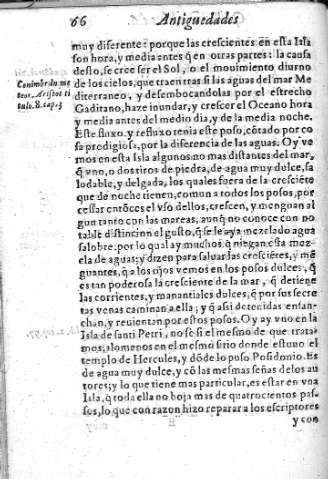 66
Antiguedades
muy diferente: porque las crescientes en esta Isla
son hora, y media antes q̃ en otras partes: la causa
desto, se cree ser el Sol, o el mouimiento diurno
de los cielos, que traen tras si las aguas del mar Me
diterraneo, y desembocandolas por el estrecho
Gaditano, haze inundar, y crescer el Oceano hora
y media antes del medio dia, y de la media noche.
Este fluxo, y refluxo tenia este poso, cõtado por co
sa prodigiosa, por la diferencia de las aguas. Oy ve
mos en esta Isla algunos no mas distantes del mar,
q̃ vno, o dos tiros de piedra, de agua muy dulce, sa
lodable, y delgada, los quales fuera de la cresciẽte
que de noche tienen, comun a todos los posos, por
cessar entõces el vso dellos, crescen, y menguan al
gun tanto con las mareas, aunq̃ no conoce con no
table distinction el gusto, q̃ se le aya mezclado agua
salobre: por lo qual ay muchos, q̃ niegan esta mez
cla de aguas; y dizen para saluar las crescientes, y mẽ
guantes, q̃ a los vemos en los posos dulces, q̃
es tan poderosa la cresciente de la mar, q̃ detiene
las corrientes, y manantiales dulces, q̃ por sus secre
tas venas caminan a ella; y q̃ assi detenidas ensan-
chan, y reuientan por estos posos. Oy ay vno en la
Isla de santi Petri, no se si el mesmo de que trata-
mos, alomenos en el mesmo sitio donde estuuo el
templo de Hercules, y dõde lo poso Posidonio. Es
de agua muy dulce, y cõ las mesmas señas delos au
tores; y lo que tiene mas particular, es estar en vna
Isla, q̃ toda ella no boja mas de quatrocientos pas-
sos, lo que con razon hizo reparar a los escriptores
y con
Conimb. de me
teor. Aristot. ti
tulo. 8. cap. 3
H